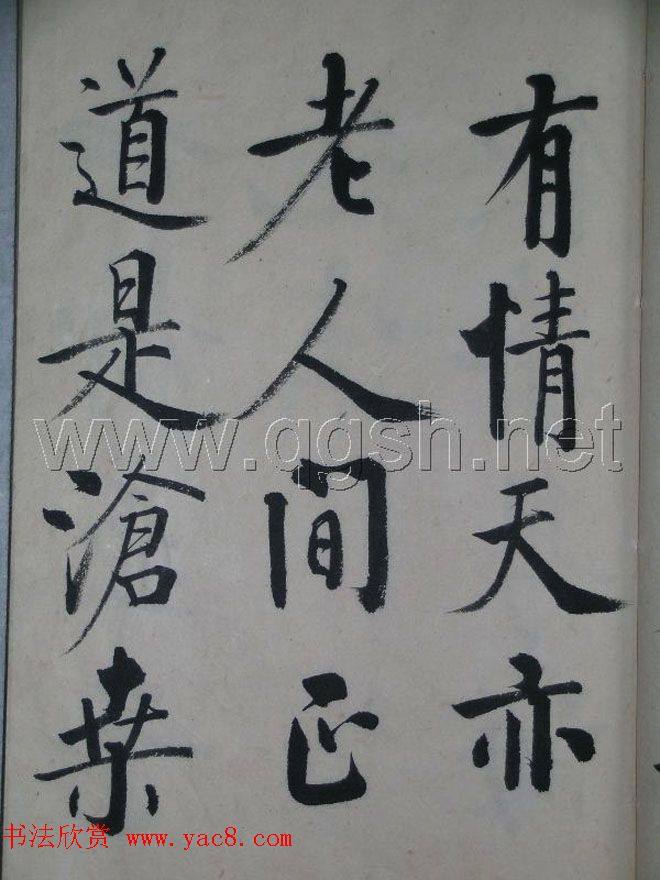 有情天亦
老人间正
道是滄桒
www.qgsh.net
书法欣赏 www.yac8.com